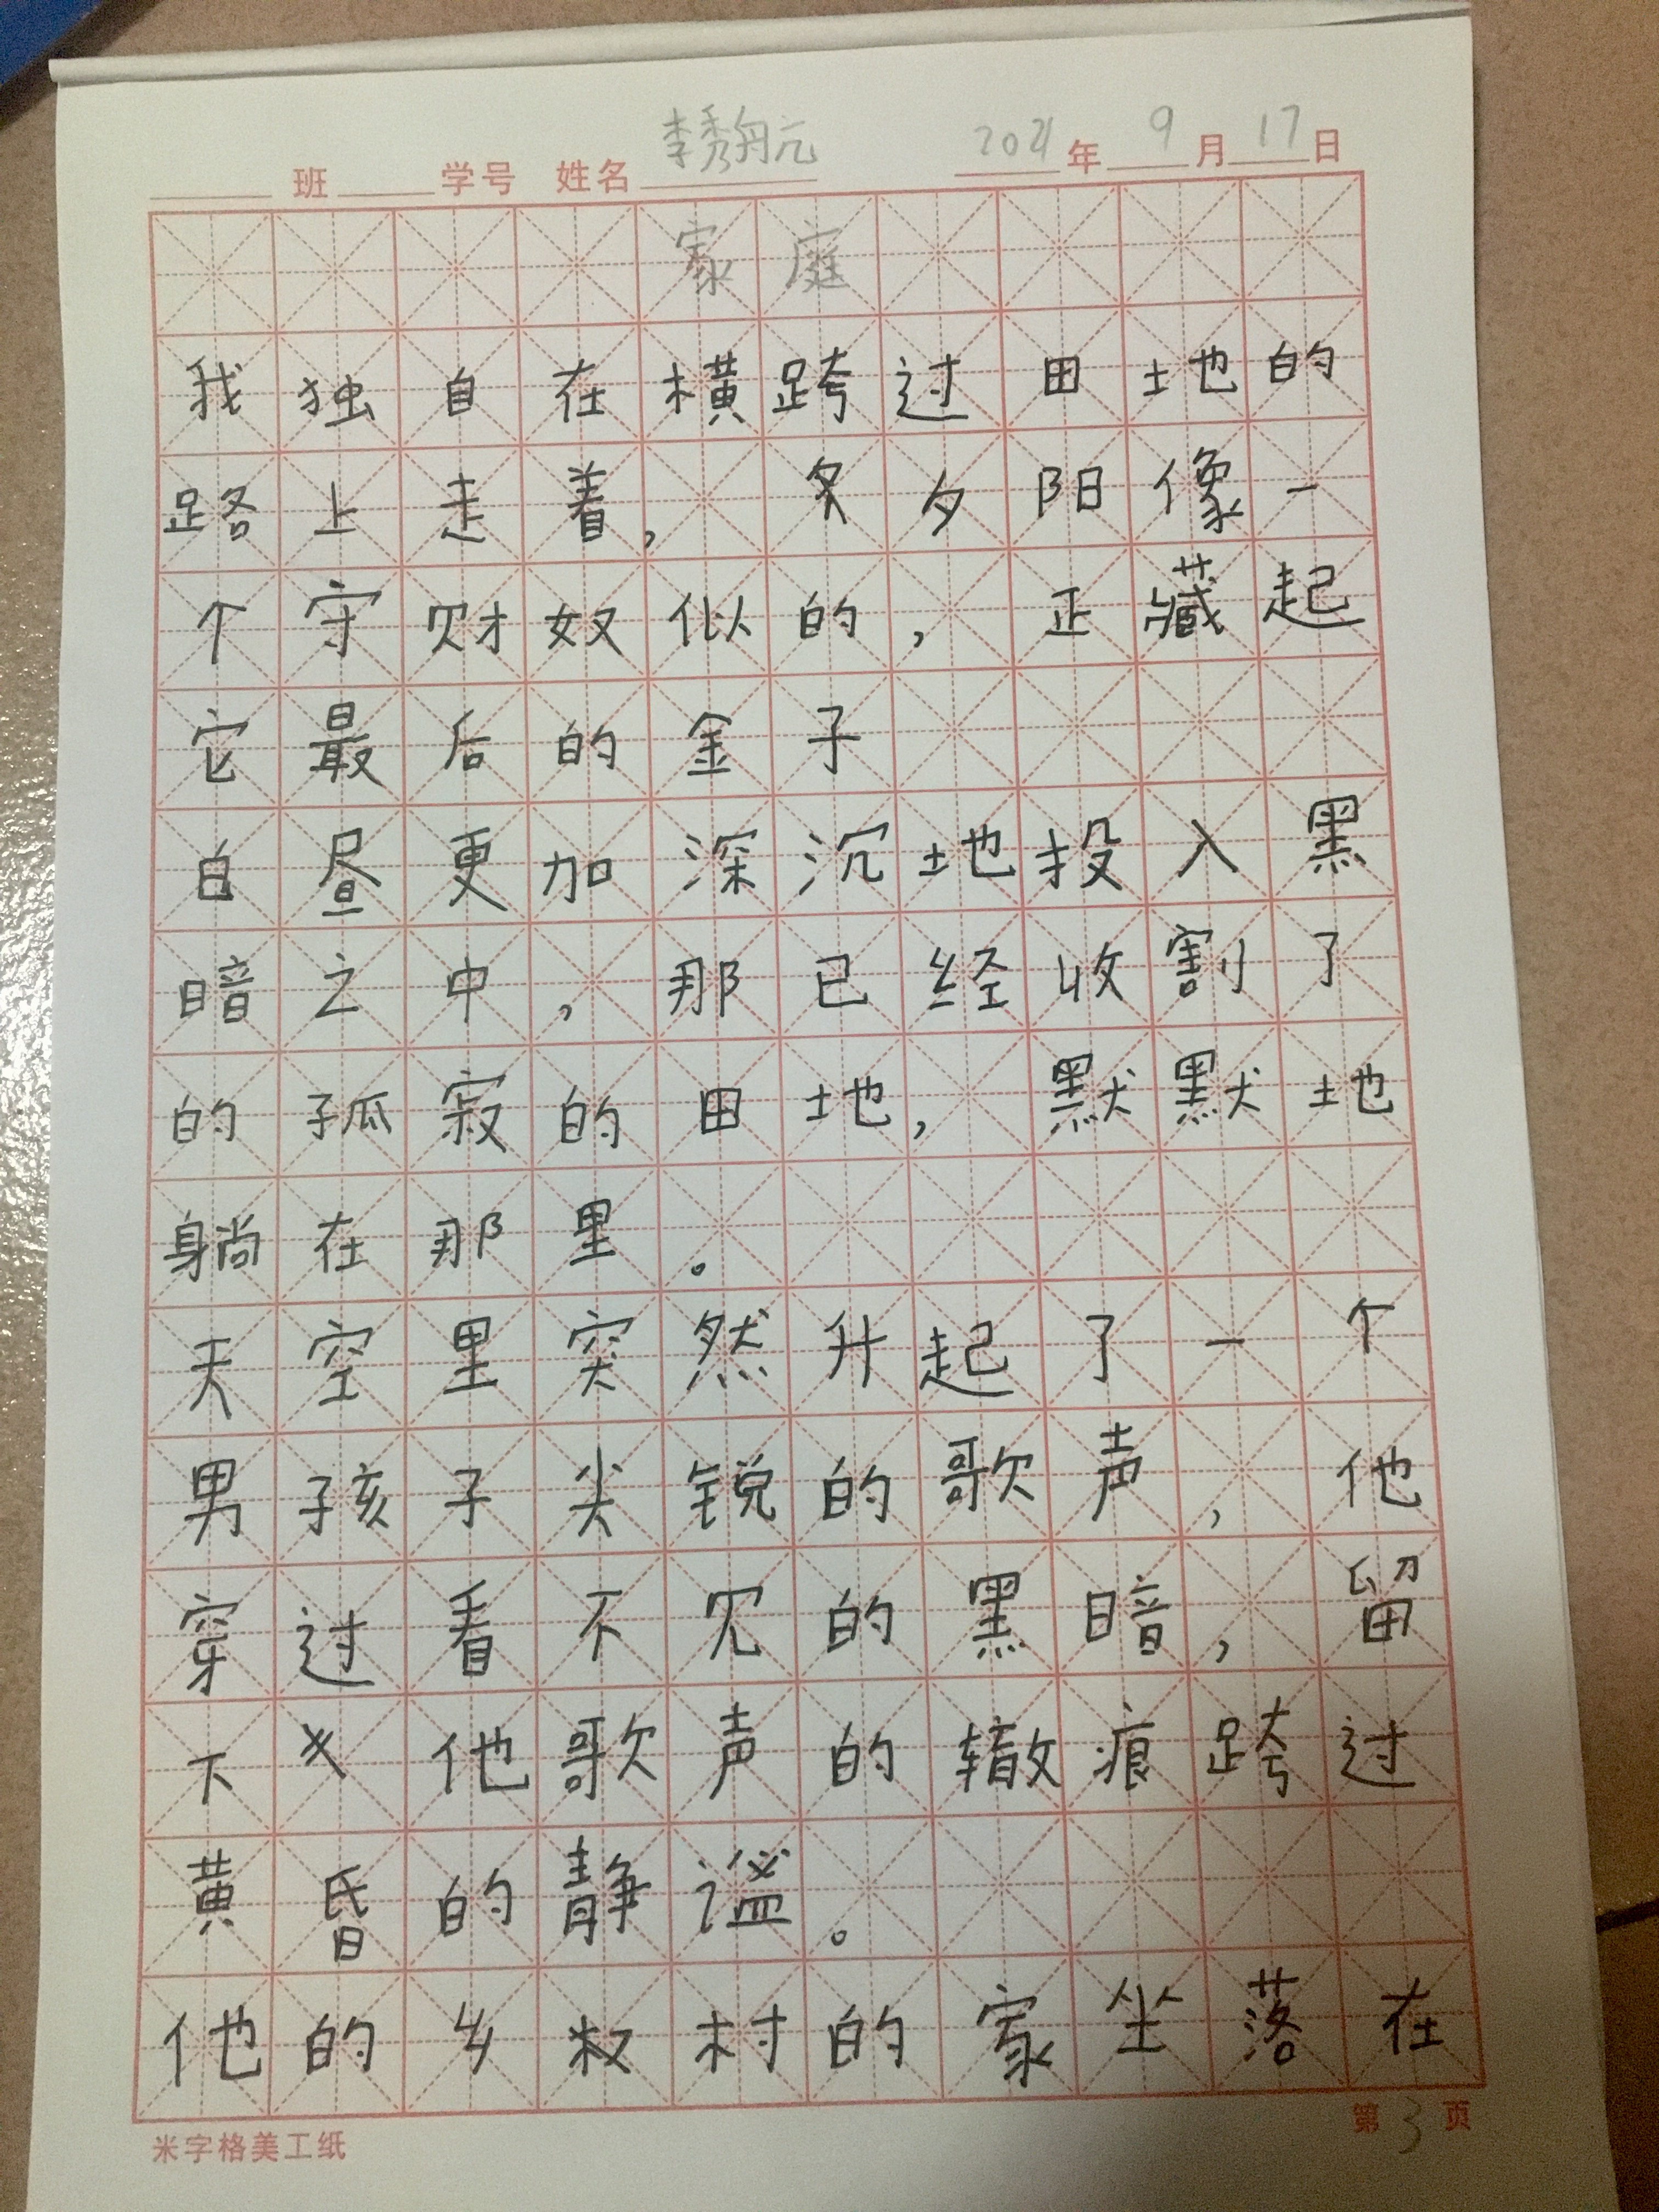 班 学号 姓名 李秀 2021年9月17日
家庭
我独自在横跨过田地的
路上走着， 夕阳像一
个守财奴似的，正藏起
它最后的金子
白昼更加深沉地投入黑
暗之中，那已经收割了
的孤寂的田地，默默地
躺在那里。
天空里突然升起了一个
男孩子尖锐的歌声，他
穿过看不见的黑暗，留
下他歌声的辙痕跨过
黄昏的静谧。
他的乡村的家坐落在
米字格美工纸 第3页